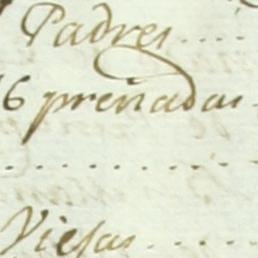 Padres....
6 preñadas
..........
Viejas.....